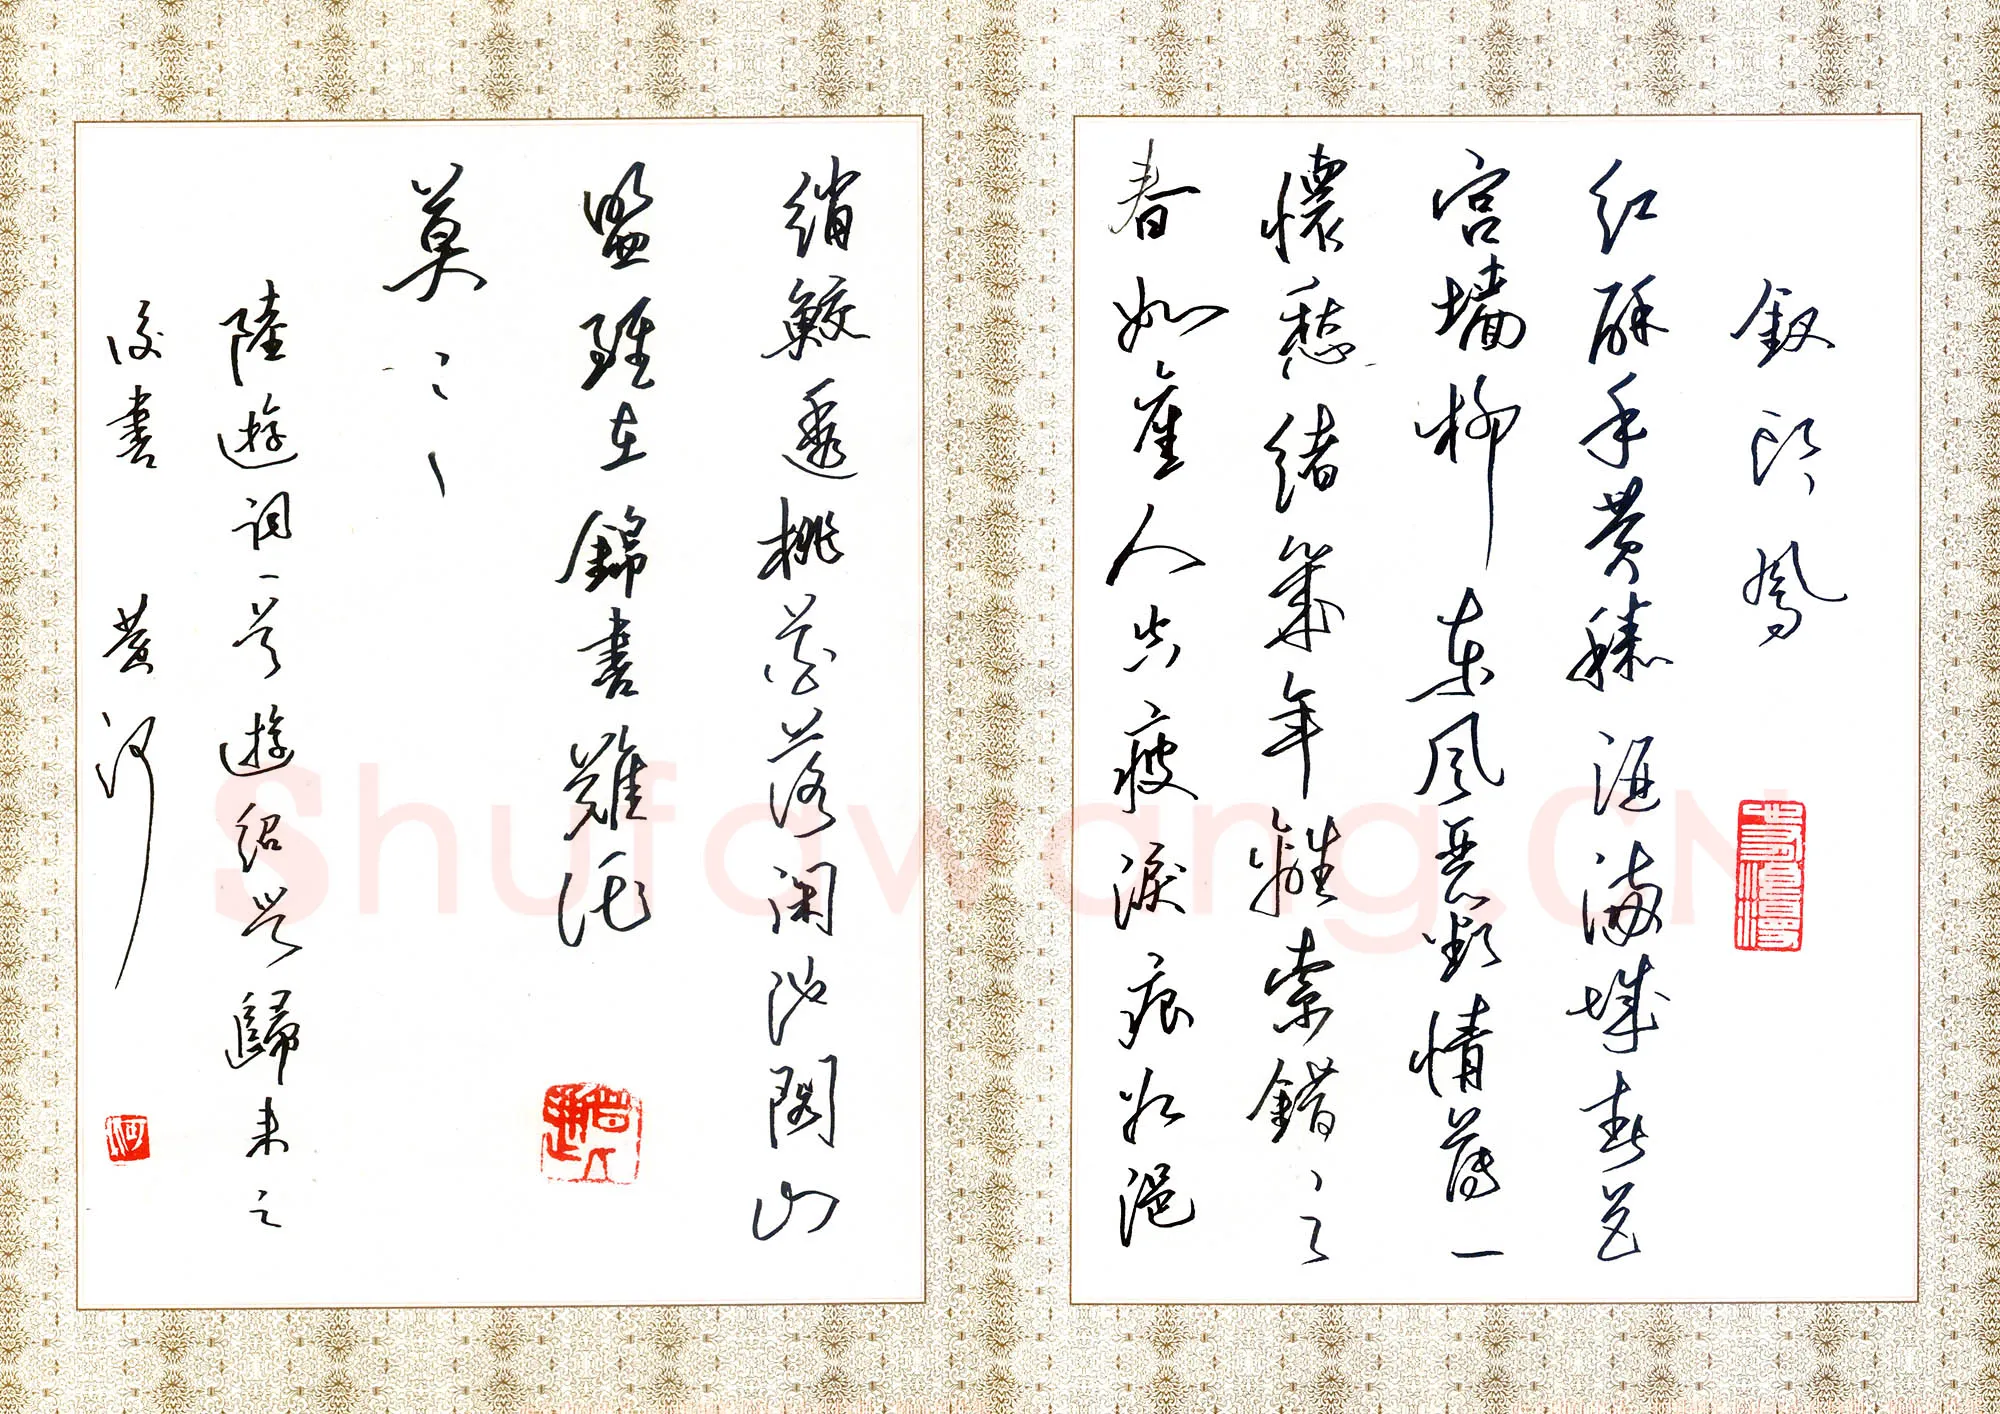 釵頭鳳
红酥手黄滕酒滿城春色
宫墙柳東風惡歡情薄一
懷愁緒幾年離索錯々々
春如舊人空瘦淚痕红浥
綃鮫透桃花落闲池閣山
盟雖在錦書難托
莫々々
陸遊詞一首遊紹興歸来之
後書 黄河
Shufawang.CN